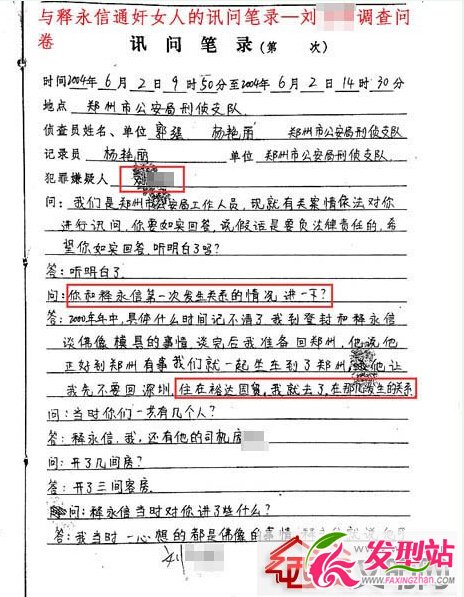 与释永信通奸女人的讯问笔录—刘 调查问
卷
讯问笔录(第 次)
时间2004年6月2日9时50分至2004年6月2日14时30分
地点 郑州市公安局刑侦支队
侦查员姓名、单位 郭强 杨艳丽 郑州市公安局刑侦支队
记录员 杨艳丽 单位 郑州市公安局刑侦支队
犯罪嫌疑人
问:我们是郑州市公安局工作人员,现就有关案情依法对你
进行讯问,你要如实回答,说假话是要负法律责任的,希
望你如实回答.听明白了吗?
答:听明白了.
问:你和释永信第一次发生关系的情况讲一下?
答:2000年年中,具体什么时间记不清了我到登封和释永信
谈佛像模具的事情,谈完后我准备回郑州,他说他
正好到郑州有事我们就一起坐车到了郑州, 他让
我先不要回深圳,住在裕达国贸,我就去了,在那儿发生的关系
问:当时你们一共有几个人?
答:释永信、我,还有他的司机房
问:开了几间房?
答:开了三间客房.
问:释永信当时对你讲了些什么?
答:我当时一心想的都是佛像的事情,
刘
发型站
www.faxingzhan.com